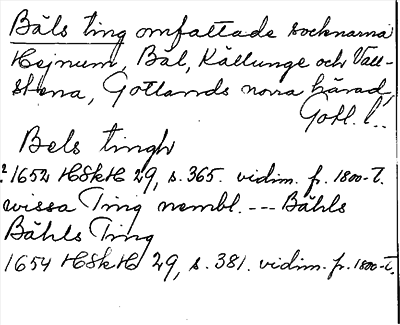 Bäls ting omfattade socknarna
Hejnum, Bäl, Källunge och Vall-
stena, Gotlands norra härad,
Gotl. l..
Bels tingh
1652 HSkH 29, s. 365. vidim. fr. 1800-t.
wissa Ting nembl. --- Bähls
Bähls Ting
1654 HSkH 29, s. 381. vidim. fr. 1800-t.